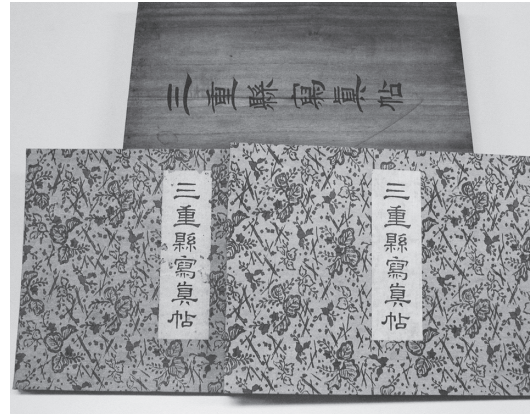 三重縣寫眞帖
三重縣寫眞帖
三重縣寫眞帖